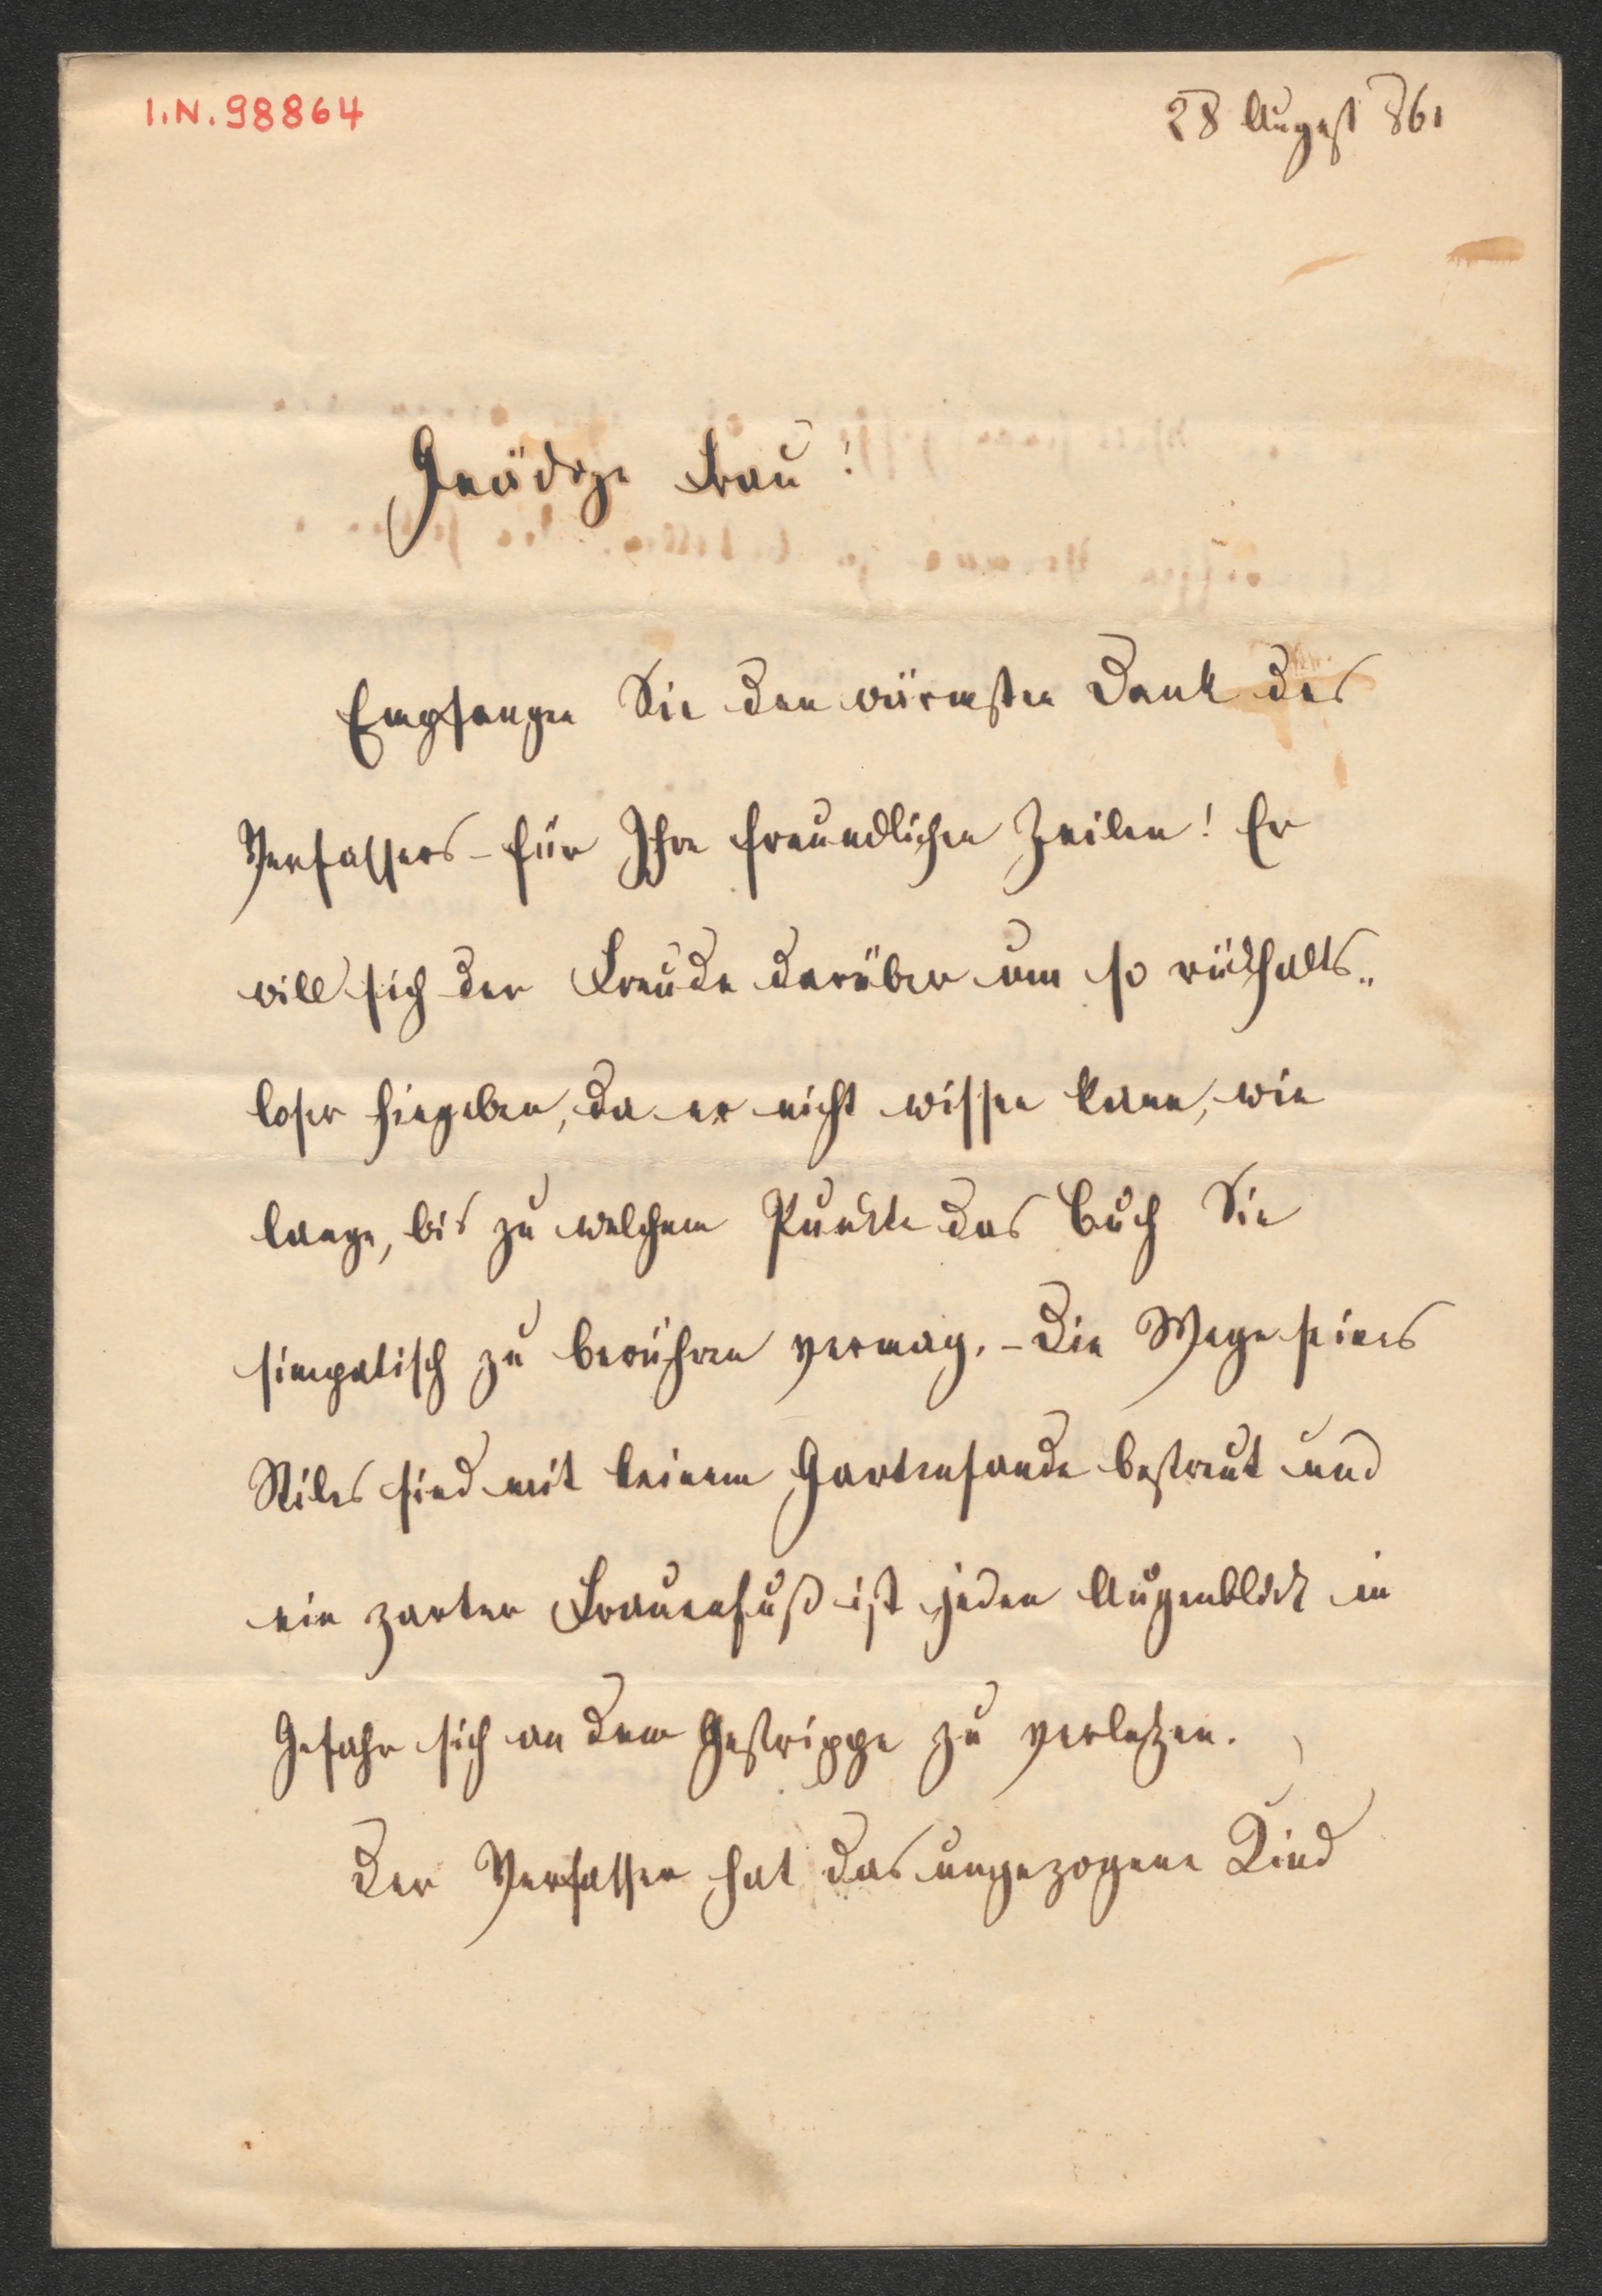 I.N. 98864
28 August 861
Gnädige Frau!
Empfangen Sie den wärmsten Dank des
Verfassers für Ihre freundlichen Zeilen! Er
will sich der Freude darüber um so rückhalts„
loser hingeben, da er nicht wissen kann, wie
lange, bis zu welchem Punkte das Buch Sie
simpatisch zu berühren vermag. – Die Wege seines
Stiles sind mit keinem Gartensande bestreut und
ein zarter Frauenfuß ist jeden Augenblick in
Gefahr sich an dem Gestrippe zu verletzen.
Der Verfasser hat das ungezogene Kind